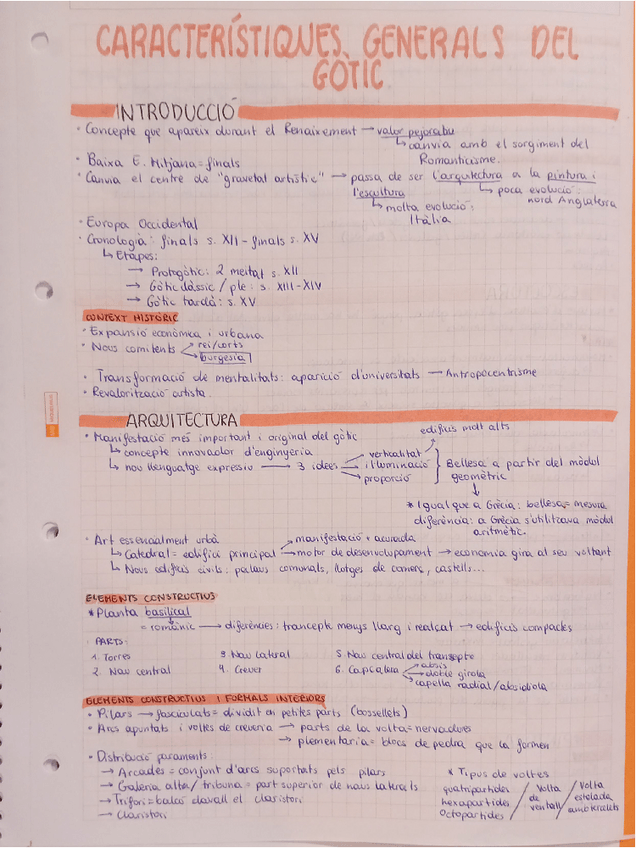 CARACTERÍSTIQUES GENERALS DEL
GÒTIC
INTRODUCCIÓ
· Concepte que apareix durant el Renaixement → valor pejoratiu
↳ canvia amb el sorgiment del
Romanticisme.
· Baixa E. Mitjana = finals
· Canvia el centre de "gravetat artístic" → passa de ser l'arquitectura a la pintura i
l'escultura ↳ poca evolució:
nord Anglaterra
↳ molta evolució:
Itàlia
· Europa Occidental
· Cronologia: finals s. XII - finals s. XV
↳ Etapes:
→ Protogòtic: 2 meitat s. XII
→ Gòtic clàssic / ple: s. XIII - XIV
→ Gòtic tardà: s. XV
CONTEXT HISTÒRIC
· Expansió econòmica i urbana
· Nous comitents rei/corts
burgesia
· Transformació de mentalitats: aparició d'universitats — Antropocentrisme
· Revalorització artista.
ARQUITECTURA
edificis molt alts
· Manifestació més important i original del gòtic
↳ concepte innovador d'enginyeria
↳ nou llenguatge expressiu → 3 idees
verticalitat
il·luminació
proporció
Bellesa a partir del mòdul
geomètric
* Igual que a Grècia: bellesa = mesura
diferència: a Grècia s'utilitzava mòdul
aritmètic.
· Art essencialment urbà
↳ Catedral = edifici principal manifestació + acurada
motor de desenvolupament → economia gira al seu voltant
↳ Nous edificis civils: palaus comunals, llotges de comerç, castells...
ELEMENTS CONSTRUCTIUS
* Planta basilical
= romànic → diferències: trancepte menys llarg i realçat → edificis compactes
· PARTS:
1. Torres 3. Nau lateral 5. Nau central del transepte
2. Nau central 4. Creuer 6. Capçalera absis
doble girola
capella radial/absidiola
ELEMENTS CONSTRUCTIUS I FORMALS INTERIORS
· Pilars → fasciculats = dividit en petites parts (bossellets)
· Arcs apuntats i voltes de creueria → parts de la volta = nervadures
→ plementaria = blocs de pedra que la formen
· Distribució paraments:
→ Arcades = conjunt d'arcs suportats pels pilars
→ Galeria alta / tribuna = part superior de naus laterals
→ Trifori = balcó davall el claristori
→ Claristori
* Tipus de voltes
quatripartides / Volta / Volta
hexapartides de estelada
Octopartides ventall amb